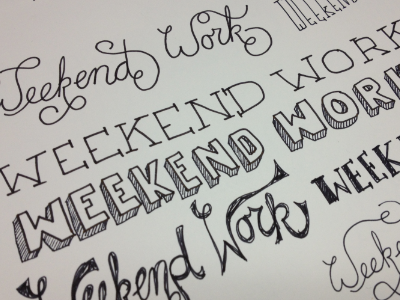 WEEKEND
Weekend Work
WEEKEND WORK
WEEKEND WORK
WEEK
Weekend Work
Weeke